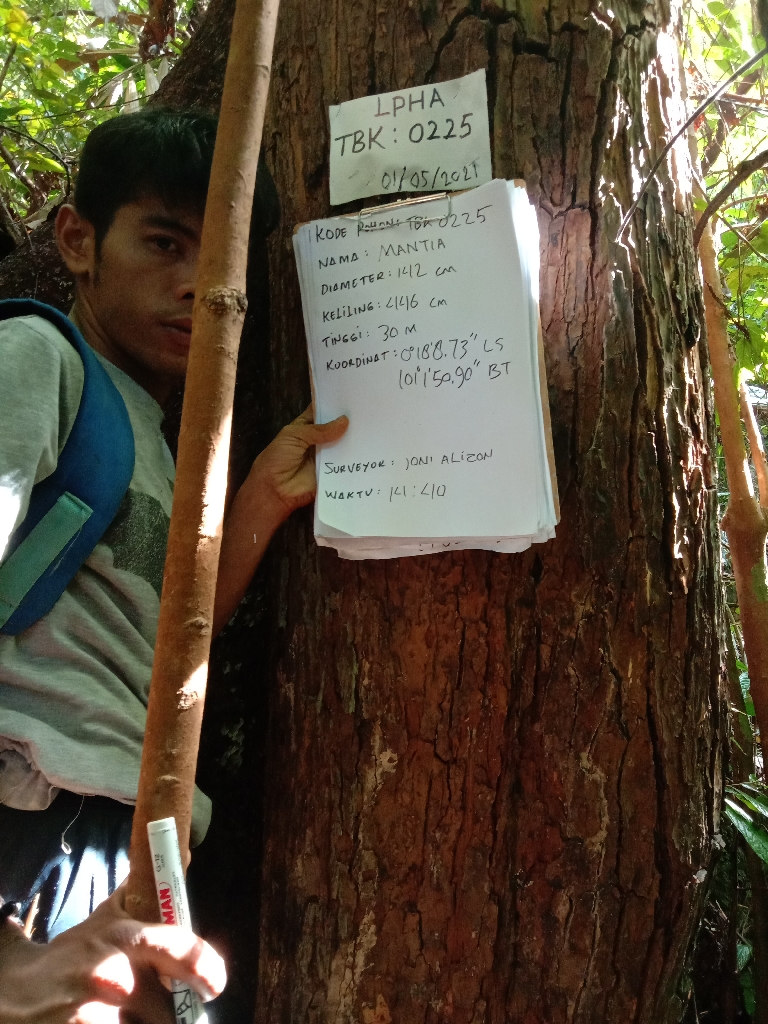 LPHA
TBK : 0225
01/05/2021
KODE POHON: TBK 0225
NAMA : MANTIA
DIAMETER : 142 cm
KELILING : 446 cm
TINGGI : 30 M
KOORDINAT : 0°18'8.73" LS
101°1'50.90" BT
SURVEYOR : JONI ALIZON
WAKTU : 14:40
MAN